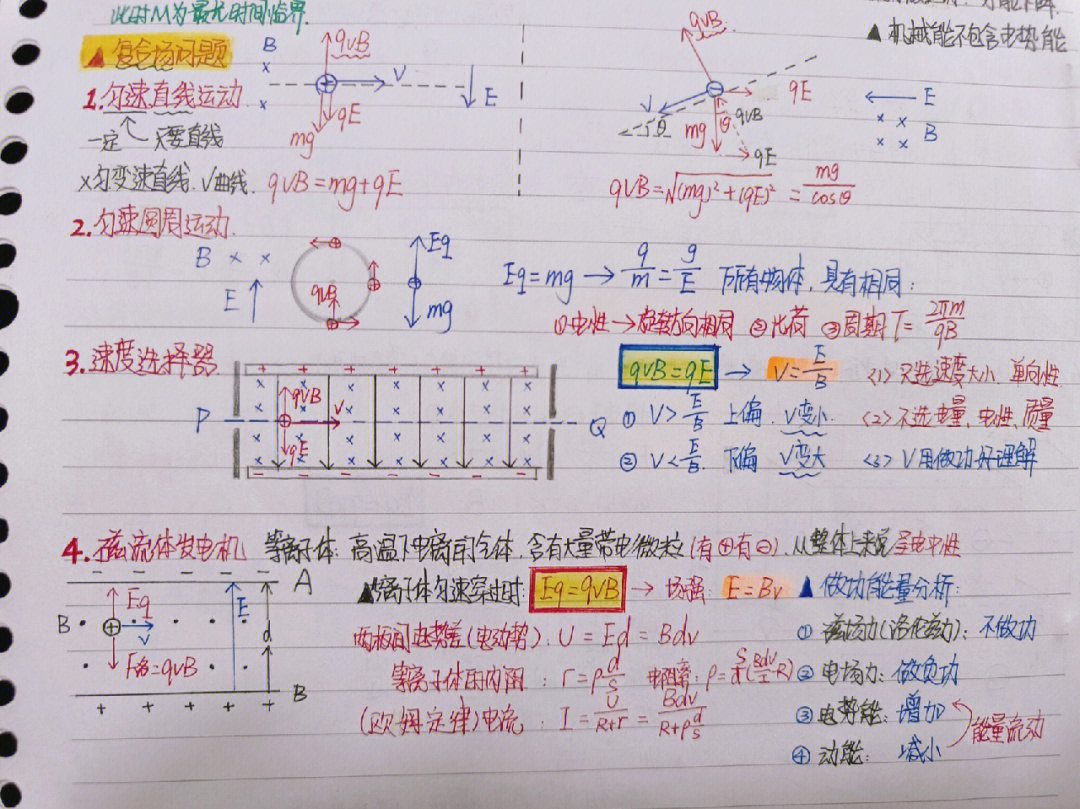 此时M为最光时间临界.
▲ 机械能不包含电势能
▲ 复合场问题
1. 匀速直线运动
一定 只要直线
x匀变速直线. √曲线.
B x x
qvB
v
E
qE
mg
qvB = mg + qE
qvB
qE
v
θ
mg
θ
qvB
qE
E
x x B
x x
qvB = √((mg)²+(qE)²) = mg/cosθ
2. 匀速圆周运动.
B x x
E ↑
qvB
Eq
mg
Eq = mg → q/m = g/E 下所有物体, 具有相同:
①电性→旋转方向相同 ②比荷 ③周期 T = 2πm/qB
3. 速度选择器
+ + + + + + +
P
qvB
v
qE
Q
qvB = qE → v = E/B <1> 只选速度大小. 单向性
① v > E/B 上偏. v变小. <2> 不选电量、电性、质量
② v < E/B. 下偏 v变大 <3> v用做功好理解
4. 磁流体发电机 等离子体: 高温下电离的气体, 含有大量带电微粒 (有⊕有⊖). 从整体上来说呈电中性
A
Eq
B
v
F洛=qvB
E
d
B
+ + + + +
▲等离子体匀速穿过时: Eq = qvB → 场强: E = Bv
两板间电势差(电动势): U = Ed = Bdv
等离子体的内阻: r = ρ d/S 电阻率: ρ = S/d (Bdv/I - R)
(欧姆定律)电流: I = U/(R+r) = Bdv/(R+ρ d/S)
▲ 做功能量分析:
① 磁场力(洛伦兹力): 不做功
② 电场力: 做负功
③ 电势能: 增加
④ 动能: 减小
能量流动